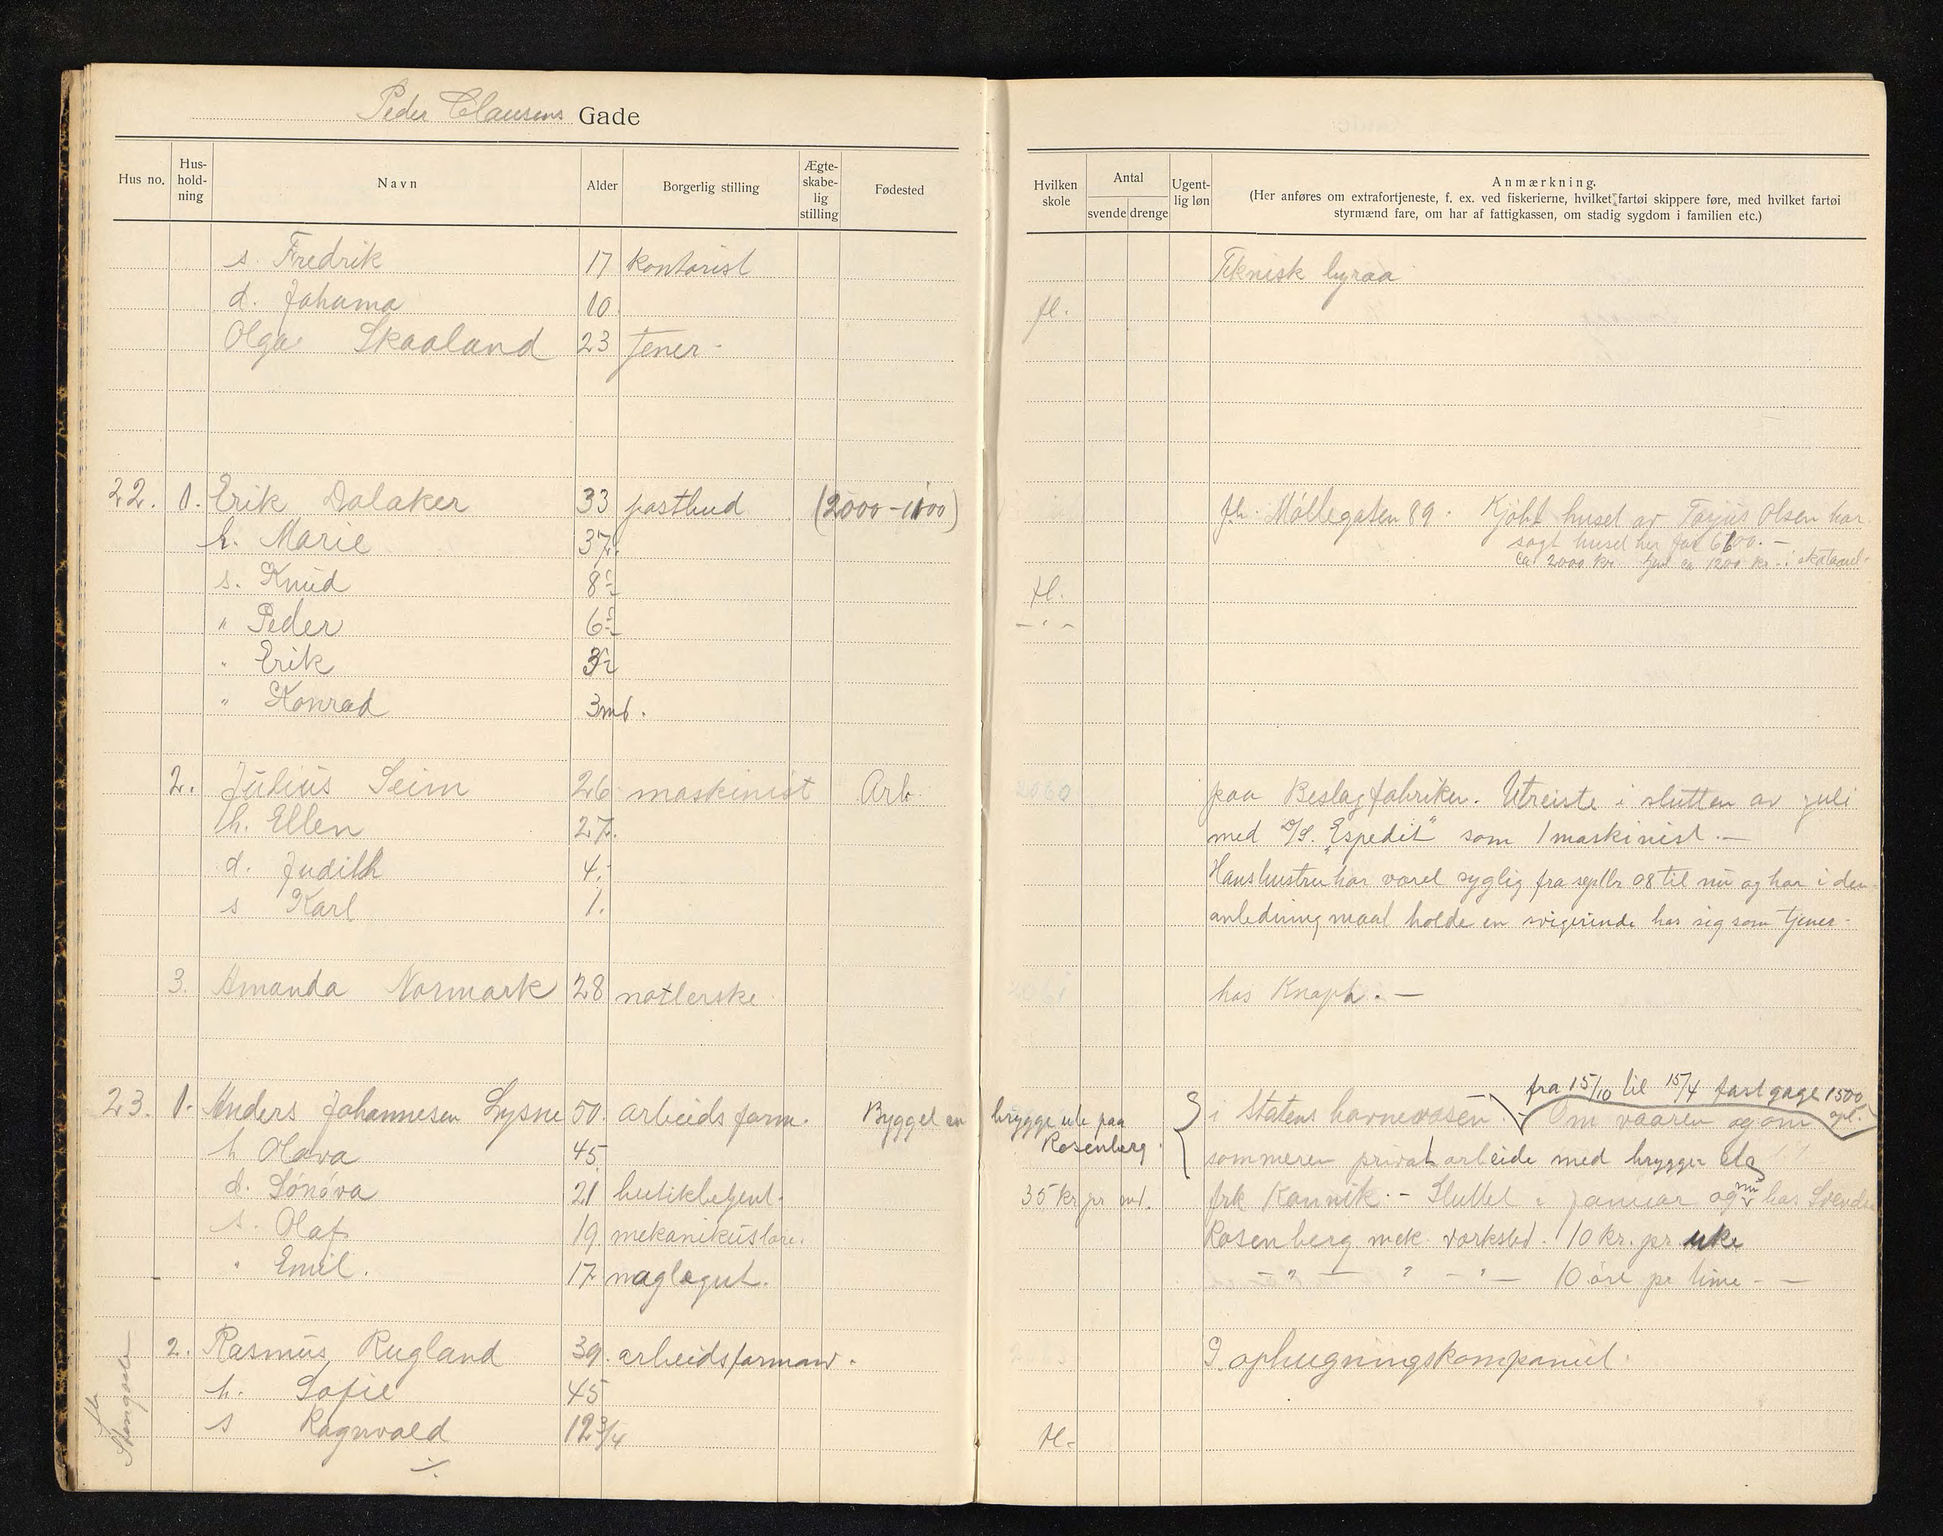 Peder Clausens Gade
Hus no. Hus-hold-ning Navn Alder Borgerlig stilling Ægte-skabe-lig stilling Fødested Hvilken skole Antal svende drenge Ugent-lig løn Anmærkning.
(Her anføres om extrafortjeneste, f. ex. ved fiskerierne, hvilket fartøi skippere føre, med hvilket fartøi
styrmænd fare, om har af fattigkassen, om stadig sygdom i familien etc.)
s. Fredrik 17 kontorist Teknisk byraa
d. Johanna 10 fl.
Olga Skaaland 23 tener
22. 1. Erik Dalaker 33 postbud (2000-1100) fh. Møllegaten 89. Kjøbt huset av Tarjus Olsen har
sagt huset her for 6600. -
ca 2000 kr. ca 1200 kr
h. Marie 37.
s. Knud 8 fl.
" Peder 6 - " -
" Erik 3
" Konrad 3 md.
2. Julius Seim 26 maskinist Arb. paa Beslagfabriken. Utreiste i slutten av juli
h. Ellen 27. med D/S. "Espedit" som 1 maskinist. -
d. Judith 4. Hans hustru har været syglig fra septbr 08 til nu og har i den
s Karl 1. anledning maat holde en svigerinde hos sig som tjener -
3. Amanda Normark 28 natlerske hos Knaph. -
fra 15/10 til 15/4 fast gage 1500
23. 1. Anders Johannesen Lysne 50. arbeidsform. Bygget en brygge ute paa Rosenberg. i Statens havnevæsen. Om vaaren og om
h Olava 45 sommeren privat arbeide med brygger etc
d. Sønøva 21 butikbetjent. 35 kr pr md. frk Kannik. - Sluttet i januar og nu hos Svends
s. Olaf 19 mekanikuslære. Rosenberg mek. værksted. 10 kr. pr. uke
" Emil. 17 naglegut. - " - " - " - 10 øre pr time - -
2. Rasmus Rugland 39. arbeidsformand. I ophugningskompaniet.
h. Sofie 45
s Ragnvald 12 3/4 fl.
fh